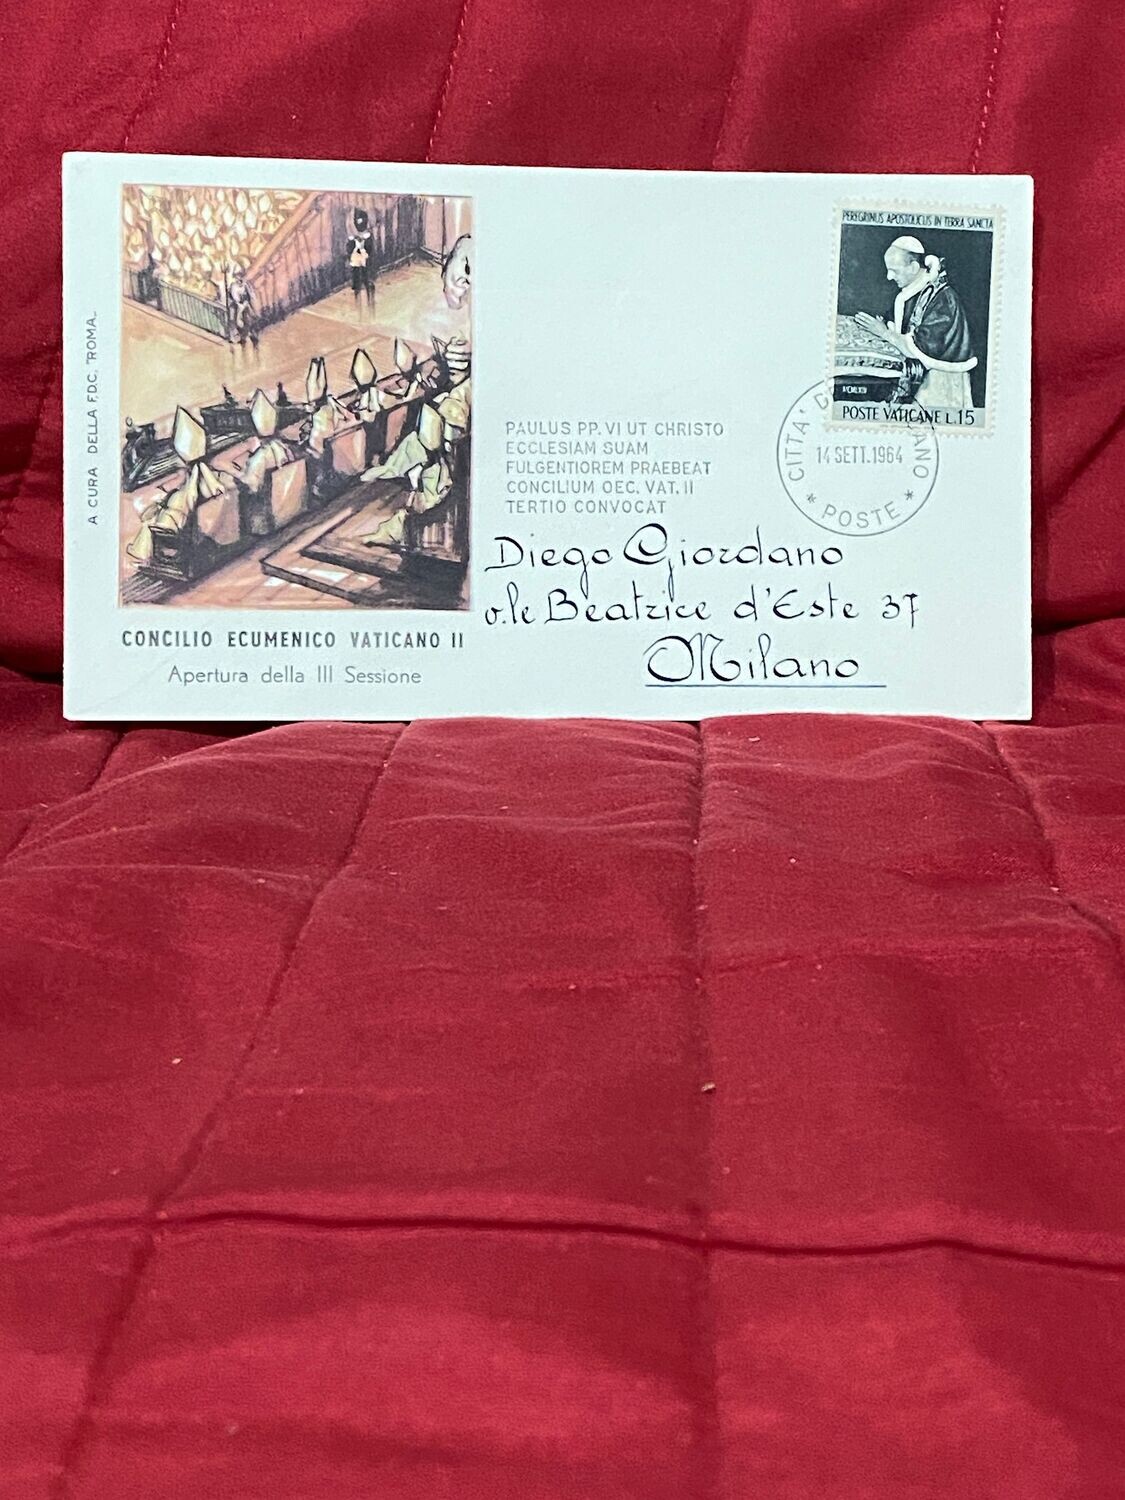 A CURA DELLA F.D.C. "ROMA"
CONCILIO ECUMENICO VATICANO II
Apertura della III Sessione
PEREGRINUS APOSTOLICUS IN TERRA SANCTA
POSTE VATICANE L.15
CITTA'
14 SETT.1964
* POSTE *
PAULUS PP. VI UT CHRISTO
ECCLESIAM SUAM
FULGENTIOREM PRAEBEAT
CONCILIUM OEC. VAT. II
TERTIO CONVOCAT
Diego Giordano
v.le Beatrice d'Este 37
Milano